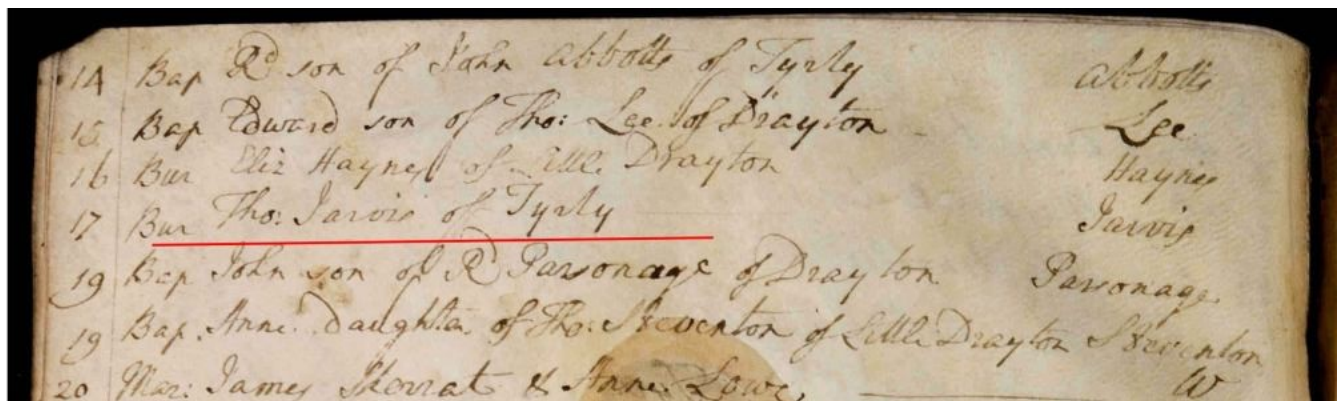 14 Bap Rd son of John Abbotts of Tyrly Abbotts
15 Bap Edward son of Tho: Lee of Drayton Lee
16 Bur Eliz Haynes of Little Drayton Haynes
17 Bur Tho: Jarvis of Tyrly Jarvis
19 Bap John son of Rd Parsonage of Drayton Parsonage
19 Bap. Anne Daughter of Tho: Steventon of Little Drayton Steventon
20 Mar: James Skerrat & Anne Lowe, W